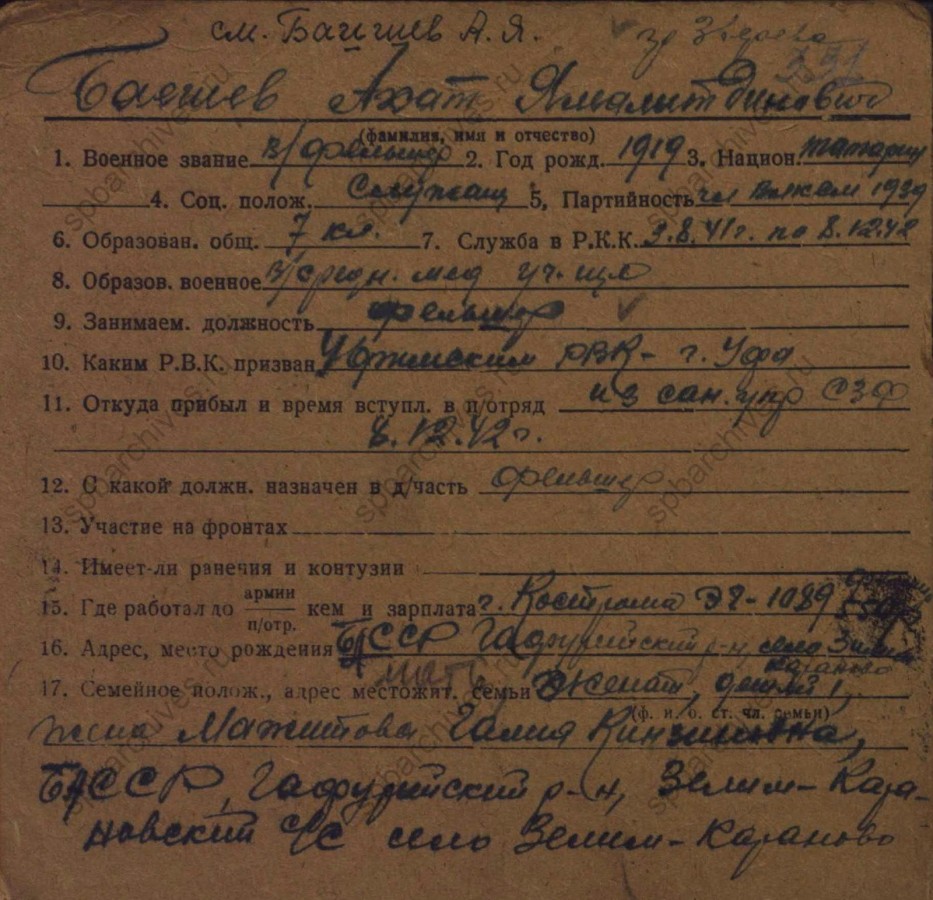 см. Баишев А. Я.
Баешев Ахат Ямалитдинович
(фамилия, имя и отчество)
1. Военное звание в/фельшер 2. Год рожд. 1919 3. Национ. татарин
4. Соц. полож. Служащ 5. Партийность чл ВЛКСМ 1939
6. Образован. общ. 7 кл. 7. Служба в Р.К.К. 9.8.41г. по 8.12.42
8. Образов. военное в/средн. мед уч-ще
9. Занимаем. должность фельшер
10. Каким Р.В.К. призван РВК - г. Уфа
11. Откуда прибыл и время вступл. в п/отряд из сан. упр СЗФ
8.12.42г.
12. С какой должн. назначен в д/часть фельшер
13. Участие на фронтах
14. Имеет-ли ранения и контузии
15. Где работал до армии/п/отр. кем и зарплата г. Кострома ЭГ-1089
16. Адрес, место рождения БАССР Гафурийский р-н, село Зилим
Караново
17. Семейное полож., адрес местожит. семьи Женат, детей 1,
(ф. и. о. ст. чл. семьи)
жена Мажитова Галия
БАССР, Гафурийский р-н, Зелим-Кара-
новский с/с село Зелим-Караново
spbarchives.ru